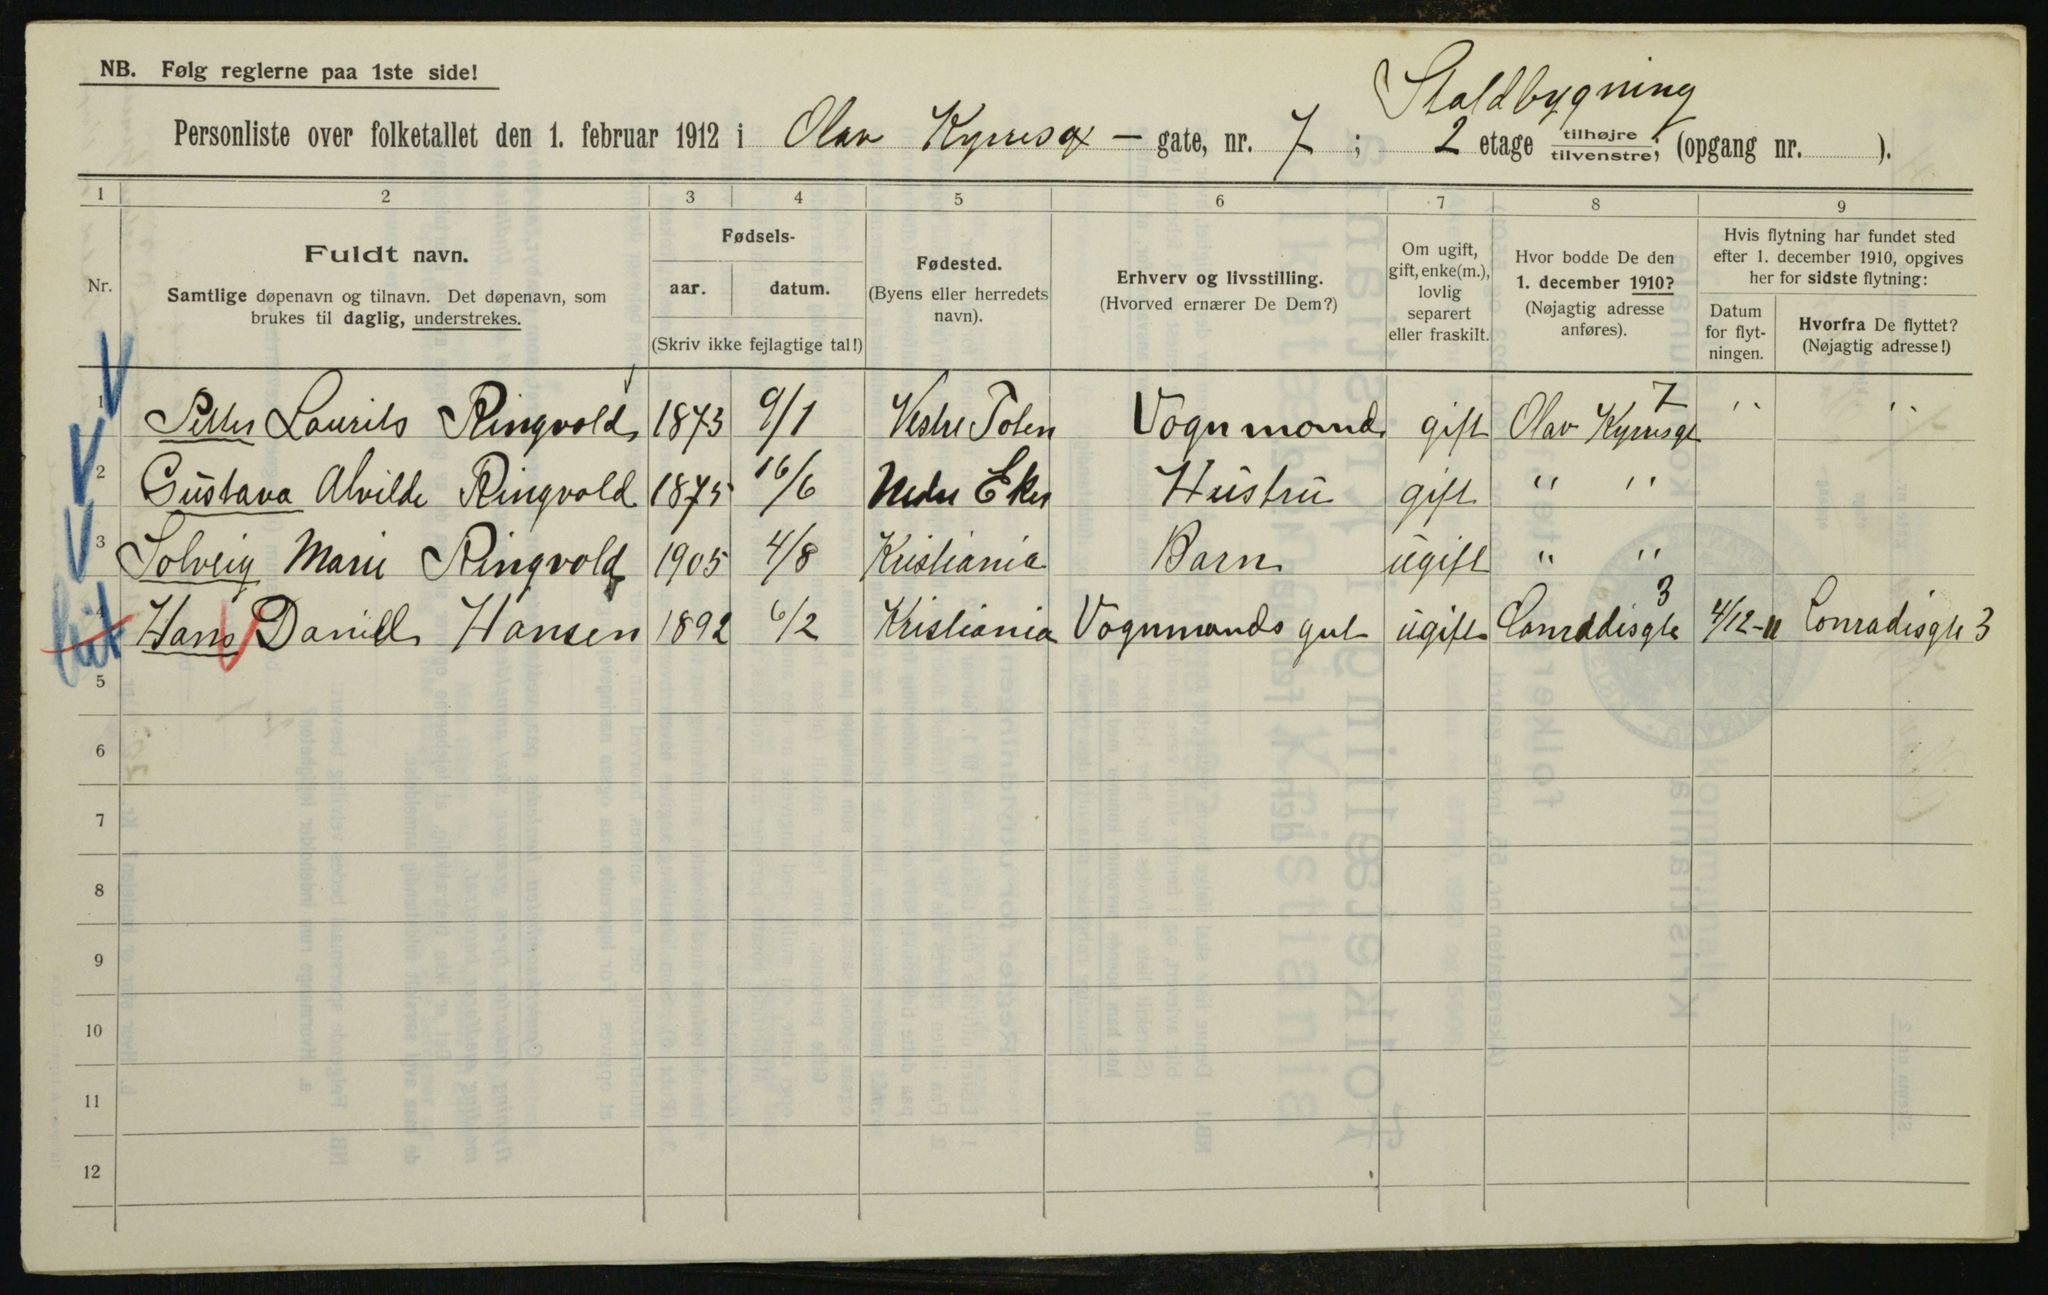 NB. Følg reglerne paa 1ste side!
Staldbygning
Personliste over folketallet den 1. februar 1912 i Olav Kyrresg — gate, nr. 7 ; 2 etage tilhøjre/tilvenstre; (opgang nr. ).
1 2 3 4 5 6 7 8 9
Nr.
Fuldt navn.
Samtlige døpenavn og tilnavn. Det døpenavn, som
brukes til daglig, understrekes.
Fødsels-
aar. datum.
(Skriv ikke fejlagtige tal!)
Fødested.
(Byens eller herredets
navn).
Erhverv og livsstilling.
(Hvorved ernærer De Dem?)
Om ugift,
gift, enke(m.),
lovlig
separert
eller fraskilt.
Hvor bodde De den
1. december 1910?
(Nøjagtig adresse
anføres).
Hvis flytning har fundet sted
efter 1. december 1910, opgives
her for sidste flytning:
Datum
for flyt-
ningen.
Hvorfra De flyttet?
(Nøjagtig adresse!)
1 Petter Laurits Ringvold 1873 9/1 Vestre Toten Vognmand gift Olav Kyrresgt 7 " "
2 Gustava Alvilde Ringvold 1875 16/6 Nedre Eker Hustru gift " "
3 Solveig Marie Ringvold 1905 4/8 Kristiania Barn ugift " "
4 Hans Daniel Hansen 1892 6/2 Kristiania Vognmands gut ugift Conradisgt 3 4/12-11 Conradisgt 3
5
6
7
8
9
10
11
12